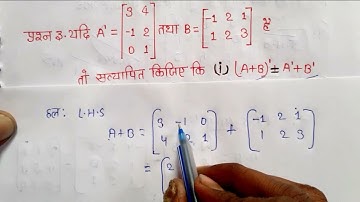 प्रश्न 3. यदि A' = [3 4 तथा B = [-1 2 1 है
-1 2 1 2 3]
0 1]
तो सत्यापित किजिए कि (i) (A+B)' = A' + B'
हल: L.H.S
A+B = [3 -1 0 + [-1 2 1
4 2 1] 1 2 3]
= [2